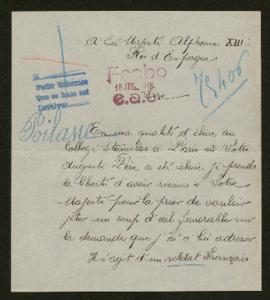 A Sa Majesté Alphonse XIII:
Roi d'Espagne
Pedir informes
Que se hace así
Fecho
18 JUL. 918
75400
Poilane
En ma qualité d'élève au
Collège Stanislas à Paris où Votre
Auguste Père a été élevé, je prends
la liberté d'avoir recours à Votre
Majesté pour la prier de vouloir
jeter un coup d'œil favorable sur
la demande que j'ai à lui adresser.
Il s'agit d'un soldat Français